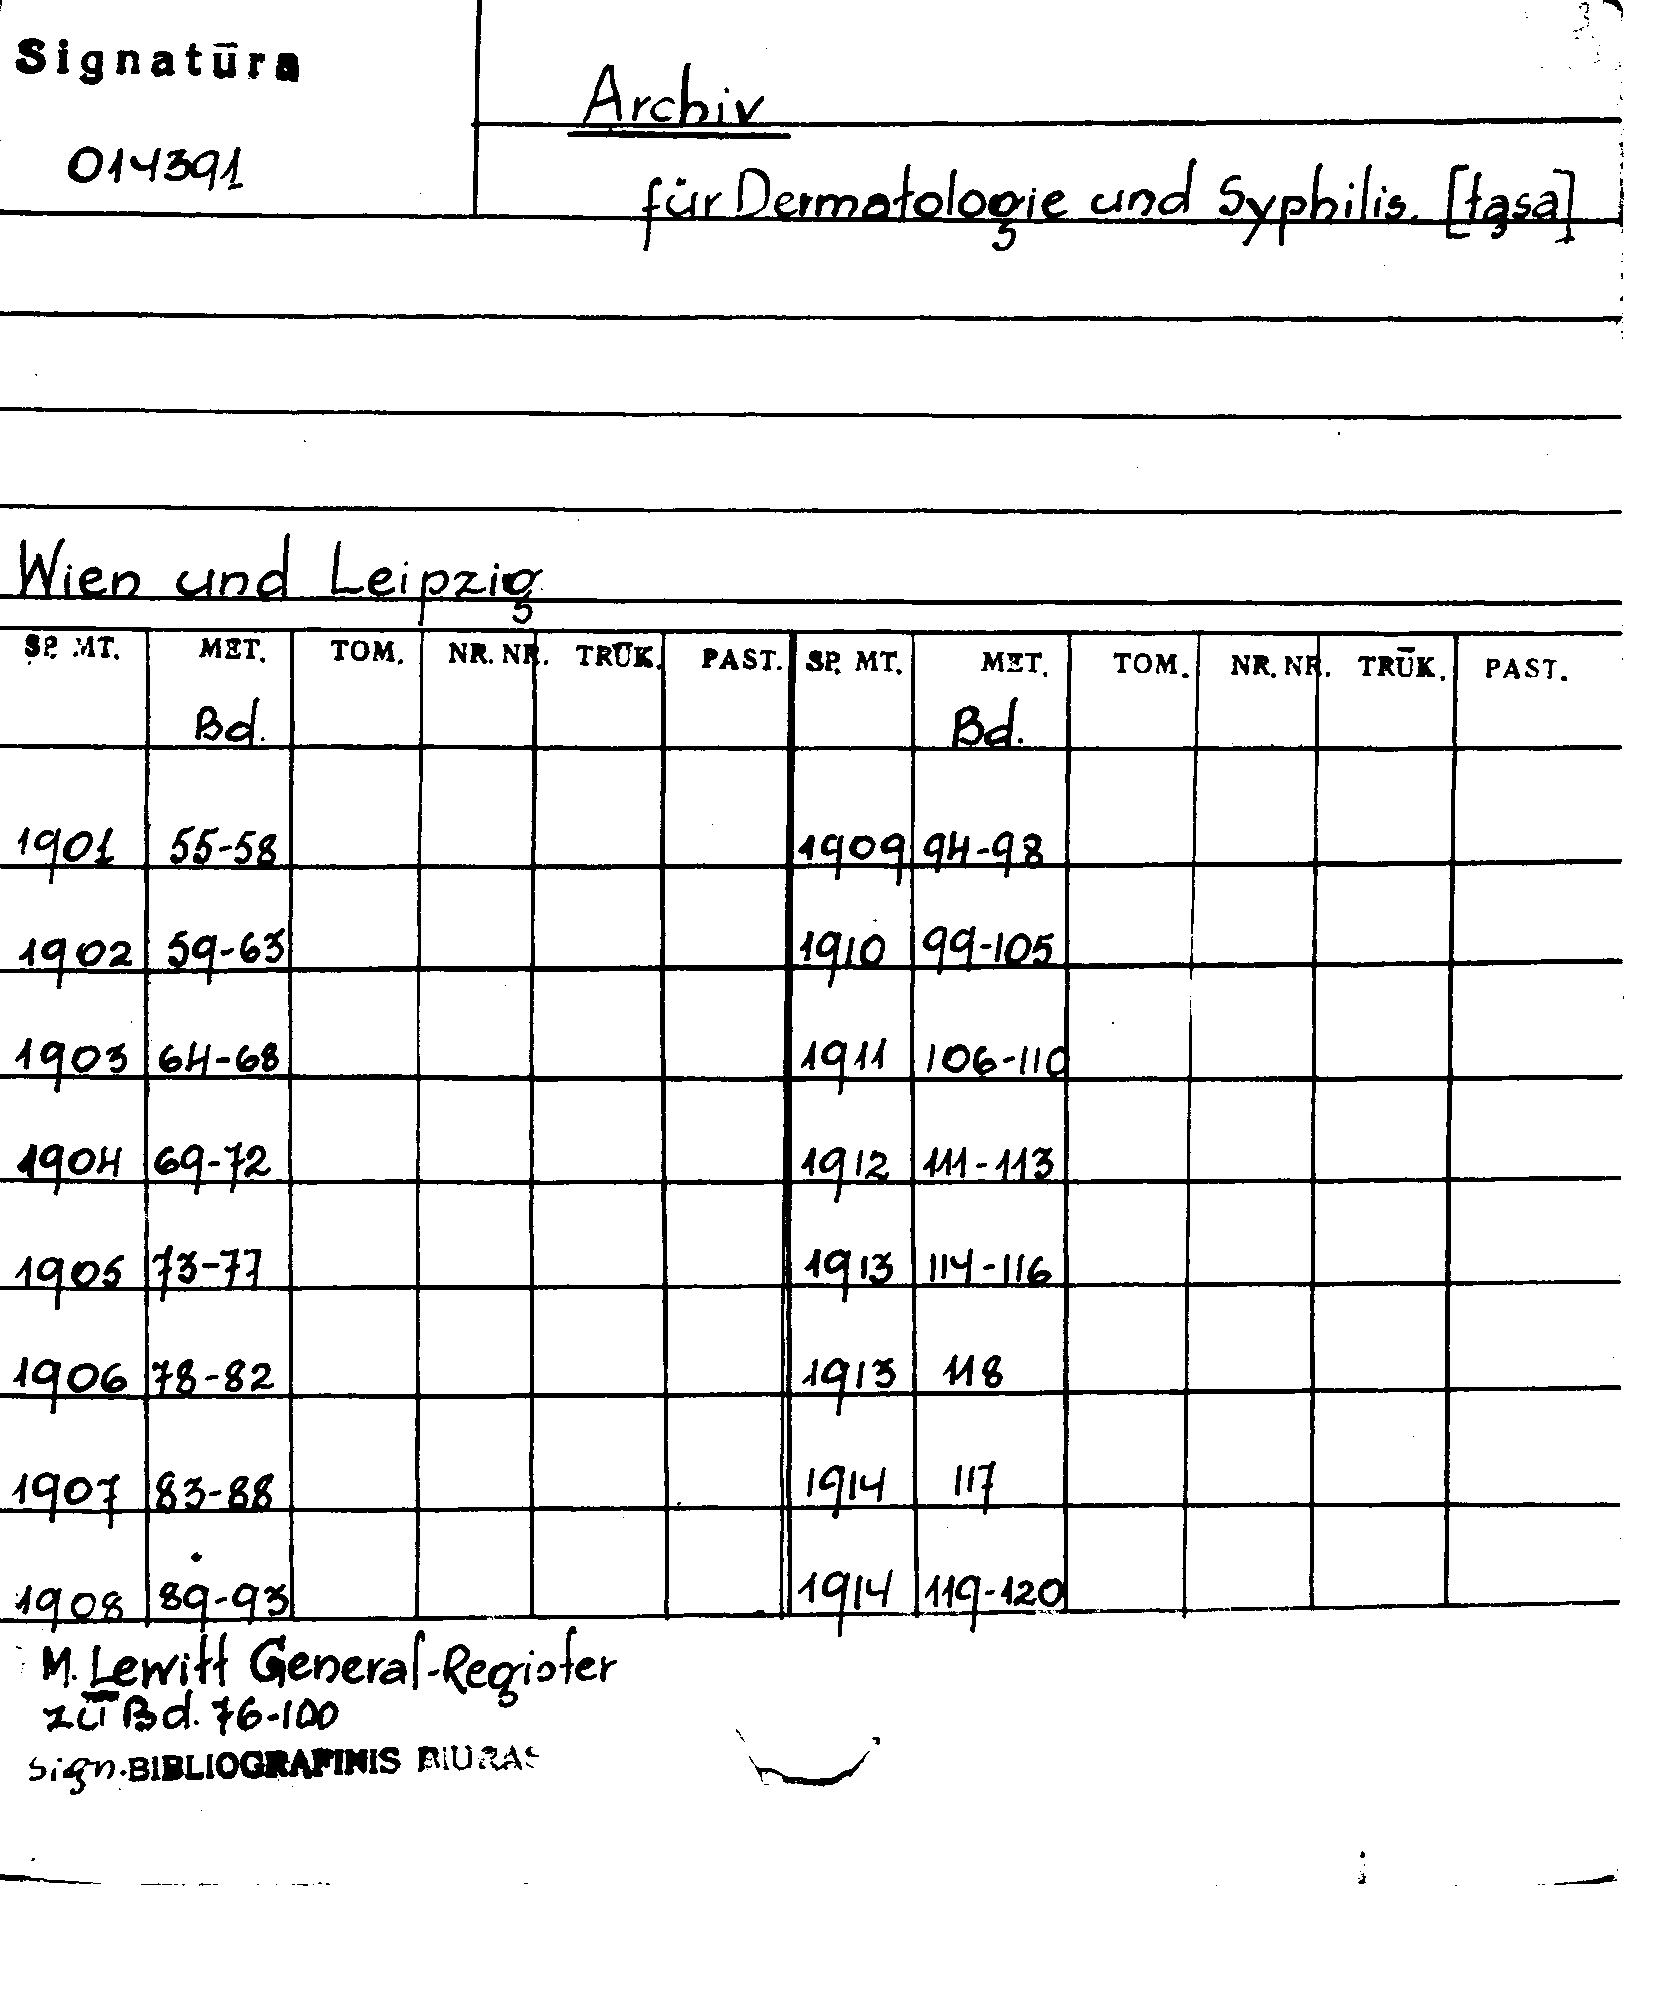 Signatūra
Archiv
014391
für Dermatologie und Syphilis. [tąsa]
Wien und Leipzig
SP. MT. MET. TOM. NR. NR. TRŪK. PAST. SP. MT. MET. TOM. NR. NR. TRŪK. PAST.
Bd. Bd.
1901 55-58 1909 94-98
1902 59-63 1910 99-105
1903 64-68 1911 106-110
1904 69-72 1912 111-113
1905 73-77 1913 114-116
1906 78-82 1913 118
1907 83-88 1914 117
1908 89-93 1914 119-120
M. Lewitt General-Register
zū Bd. 76-100
sign. BIBLIOGRAFINIS BIURAS